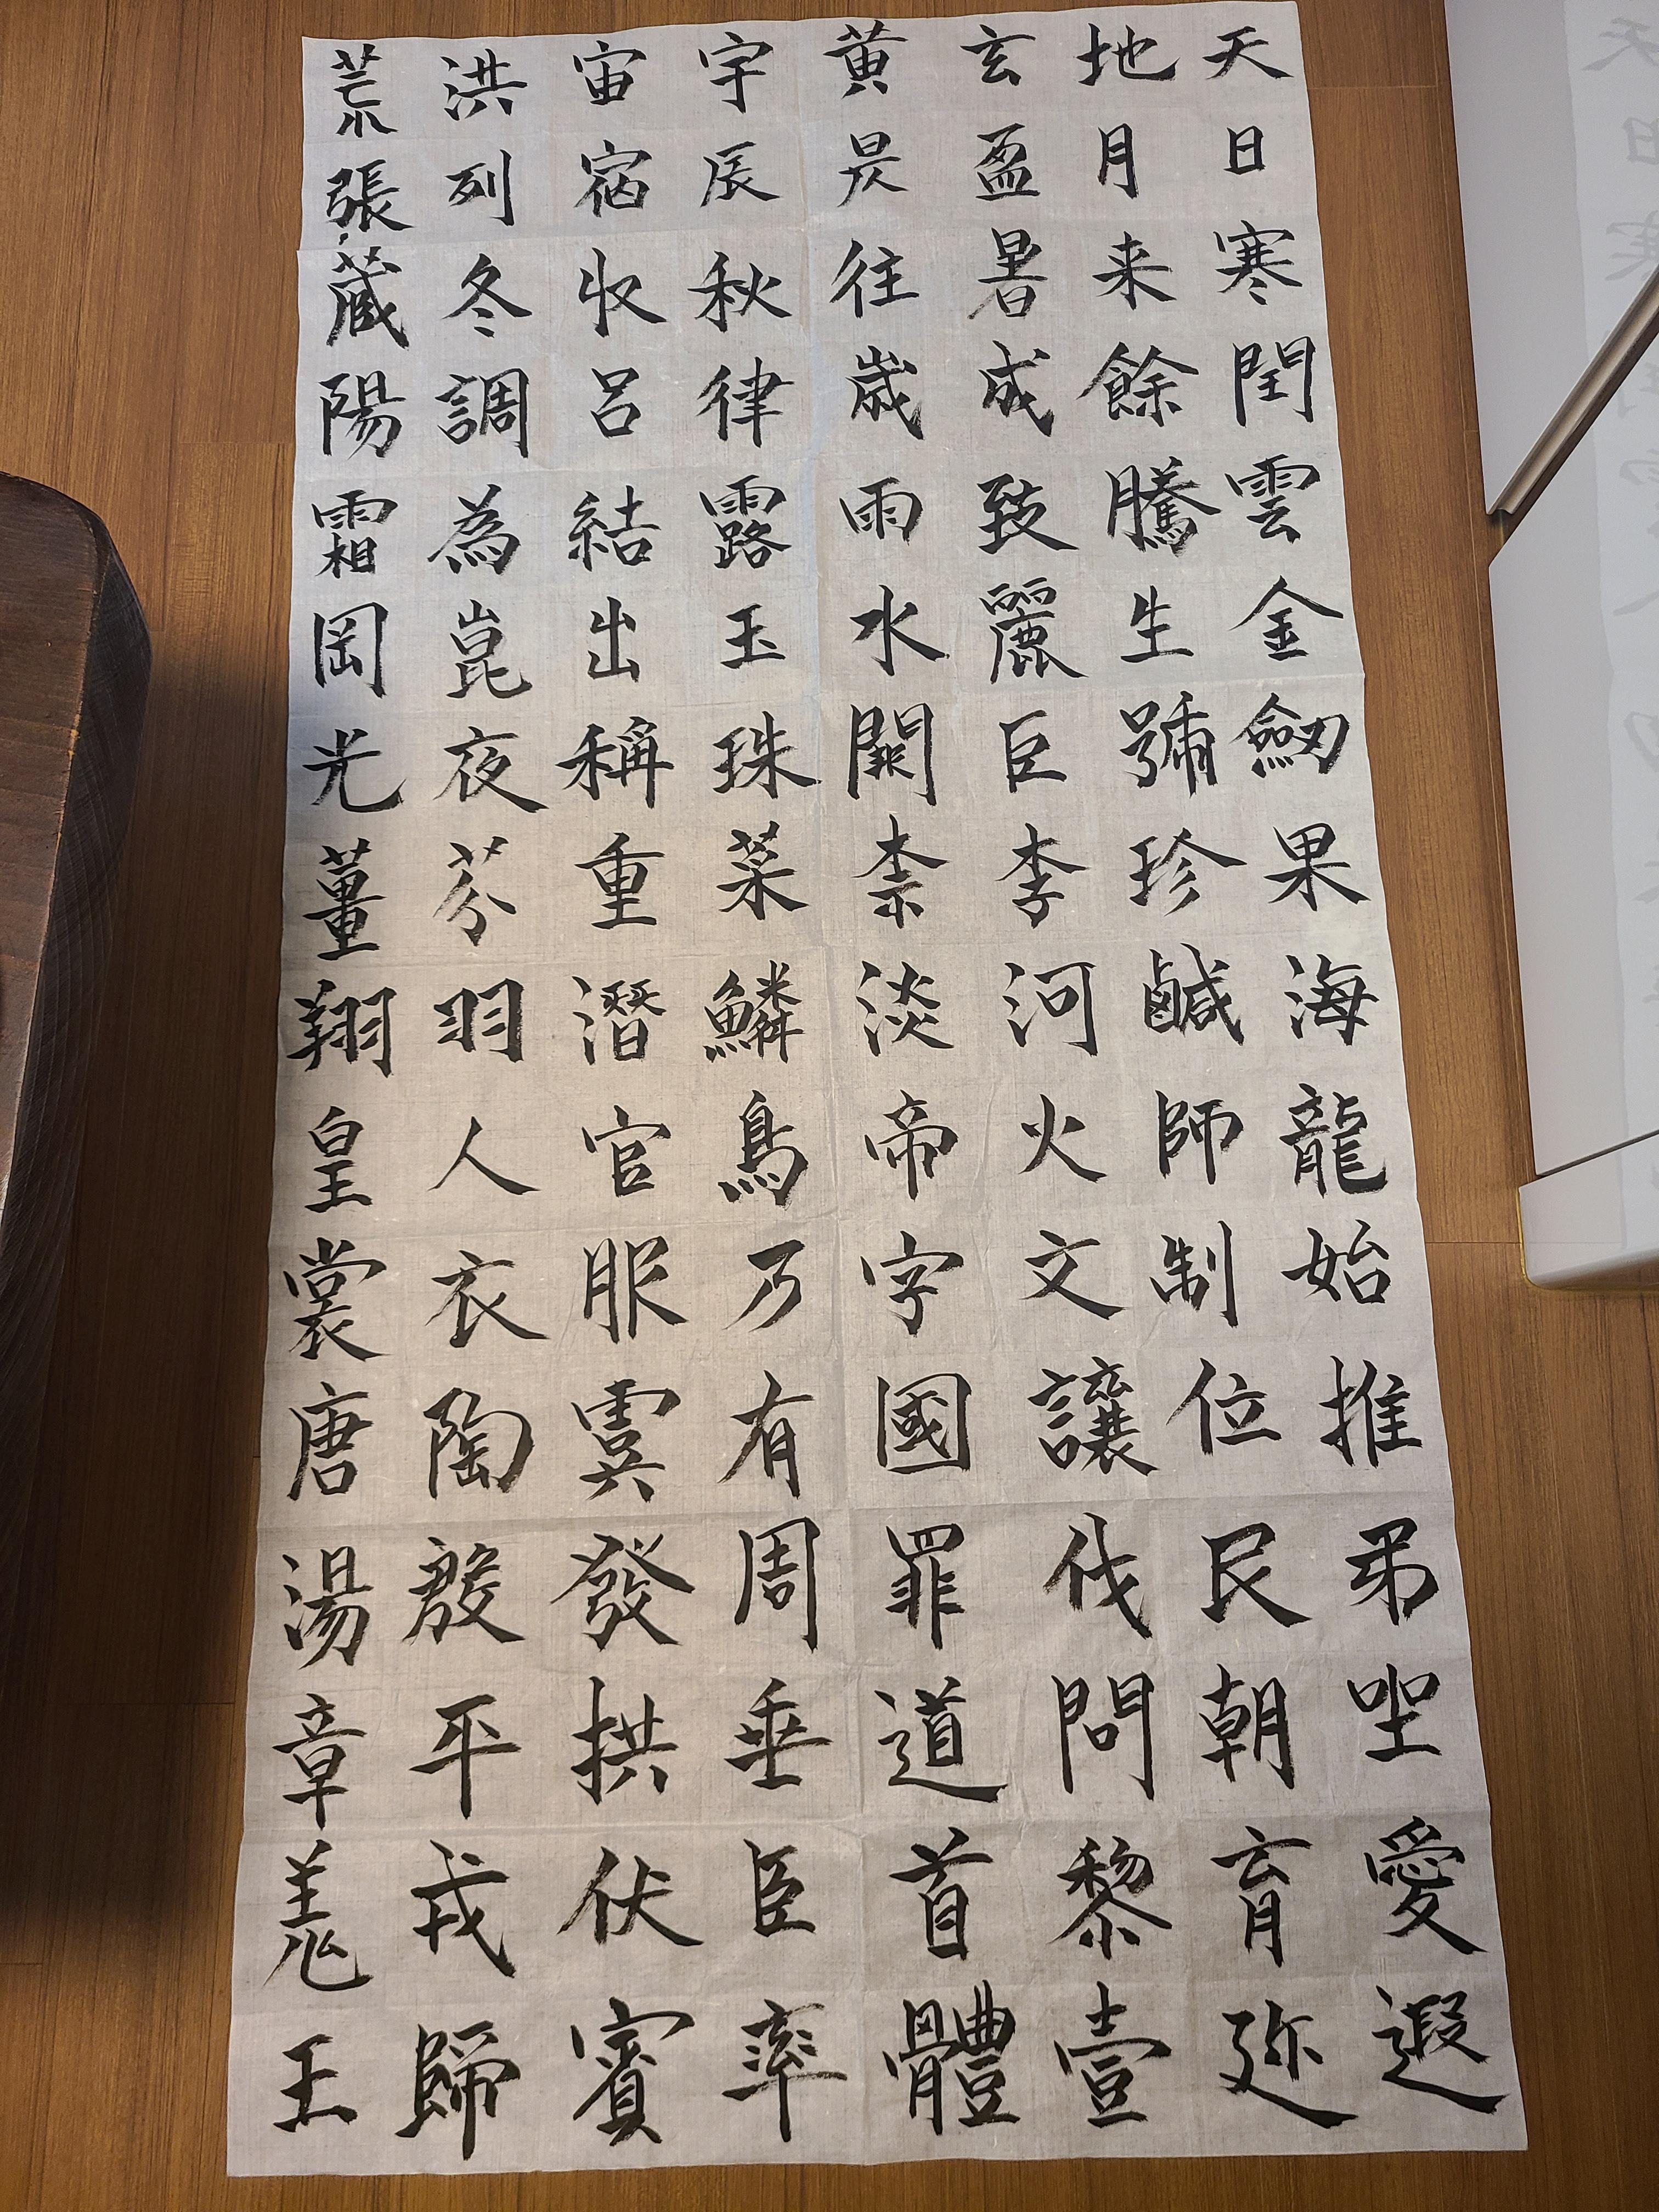 天地玄黄宇宙洪荒
日月盈昃辰宿列張
寒来暑往秋収冬蔵
閏餘成歳律呂調陽
雲騰致雨露結為霜
金生麗水玉出崑岡
劒號巨闕珠稱夜光
果珍李柰菜重芥薑
海鹹河淡鱗潛羽翔
龍師火帝鳥官人皇
始制文字乃服衣裳
推位讓國有虞陶唐
弔民伐罪周發殷湯
坐朝問道垂拱平章
愛育黎首臣伏戎羌
遐迩壹體率賓歸王